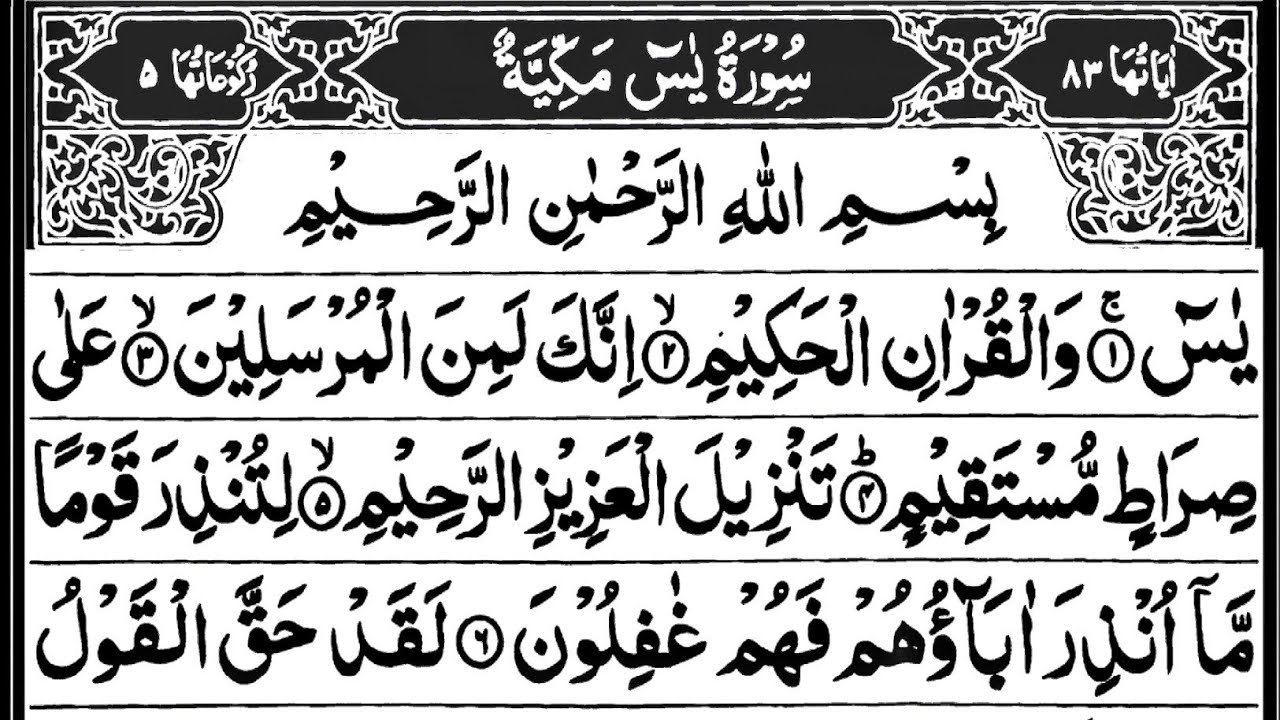 اٰيَاتُهَا ٨٣ سُوْرَةُ يٰسٓ مَكِّيَّةٌ رُكُوْعَاتُهَا ٥
بِسْمِ اللّٰهِ الرَّحْمٰنِ الرَّحِيْمِ
يٰسٓ ۚ‏﴿۱﴾ وَالْقُرْاٰنِ الْحَكِيْمِ ۙ‏﴿۲﴾ اِنَّكَ لَمِنَ الْمُرْسَلِيْنَ ۙ‏﴿۳﴾ عَلٰى
صِرَاطٍ مُّسْتَقِيْمٍ ؕ‏﴿۴﴾ تَنْزِيْلَ الْعَزِيْزِ الرَّحِيْمِ ۙ‏﴿۵﴾ لِتُنْذِرَ قَوْمًا
مَّاۤ اُنْذِرَ اٰبَآؤُهُمْ فَهُمْ غٰفِلُوْنَ ﴿۶﴾ لَقَدْ حَقَّ الْقَوْلُ